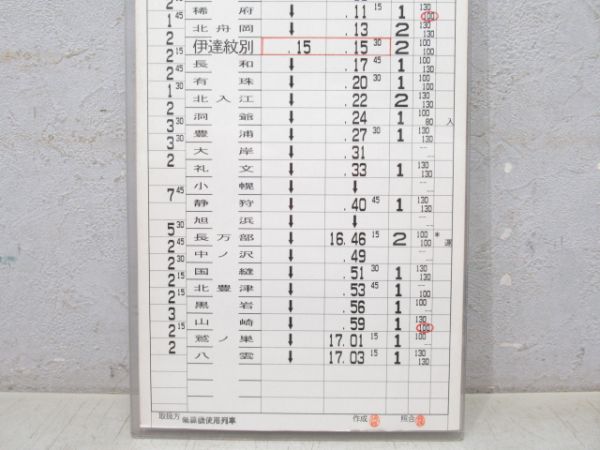 2 45 稀府 ↓ .11 15 1 130 100
1 北舟岡 ↓ .13 2 130 130
2 15 伊達紋別 .15 .15 30 2
2 長和 ↓ .17 45 1 100 130
2 有珠 ↓ .20 30 1 130 100
1 北入江 ↓ .22 2 130 130
2 洞爺 ↓ .24 1 100 80 入
3 30 豊浦 ↓ .27 30 1 130 130
3 大岸 ↓ .31
2 礼文 ↓ .33 1 130 130
小幌 ↓ ↓
7 45 静狩 ↓ .40 45 1 130 130
旭浜 ↓ ↓
5 30 長万部 ↓ 16.46 15 2 100 100 * 運
2 45 中ノ沢 ↓ .49
2 30 国縫 ↓ .51 30 1 130
2 15 北豊津 ↓ .53 45 1 100
2 15 黒岩 ↓ .56 1 100
3 山崎 ↓ .59 1 130 100
2 15 鷲ノ巣 ↓ 17.01 15 1 100
2 八雲 ↓ 17.03 15 1 130 130
取扱方 無線機使用列車 作成 照合